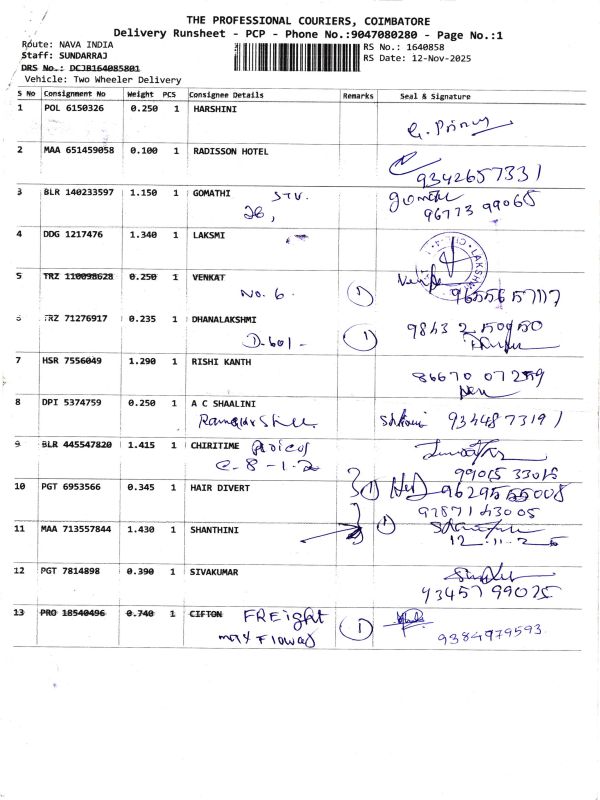 THE PROFESSIONAL COURIERS, COIMBATORE
Delivery Runsheet - PCP - Phone No.:9047080280 - Page No.:1
Route: NAVA INDIA
RS No.: 1640858
Staff: SUNDARRAJ
RS Date: 12-Nov-2025
DRS No.: DCJB164085801
Vehicle: Two Wheeler Delivery
S No Consignment No Weight PCS Consignee Details Remarks Seal & Signature
1 POL 6150326 0.250 1 HARSHINI
2 MAA 651459058 0.100 1 RADISSON HOTEL
9342657331
3 BLR 140233597 1.150 1 GOMATHI
26,
96773 99065
4 DDG 1217476 1.340 1 LAKSMI
5 TRZ 110098628 0.250 1 VENKAT
No. 6 1
6 TRZ 71276917 0.235 1 DHANALAKSHMI
D-601- 1
7 HSR 7556049 1.290 1 RISHI KANTH
8 DPI 5374759 0.250 1 A C SHAALINI
9 BLR 445547820 1.415 1 CHIRITIME
C-8-1-2
10 PGT 6953566 0.345 1 HAIR DIVERT 1
11 MAA 713557844 1.430 1 SHANTHINI 1
12 PGT 7814898 0.390 1 SIVAKUMAR
13 PRO 18540496 0.740 1 CIFTON FREight 1
9384979593